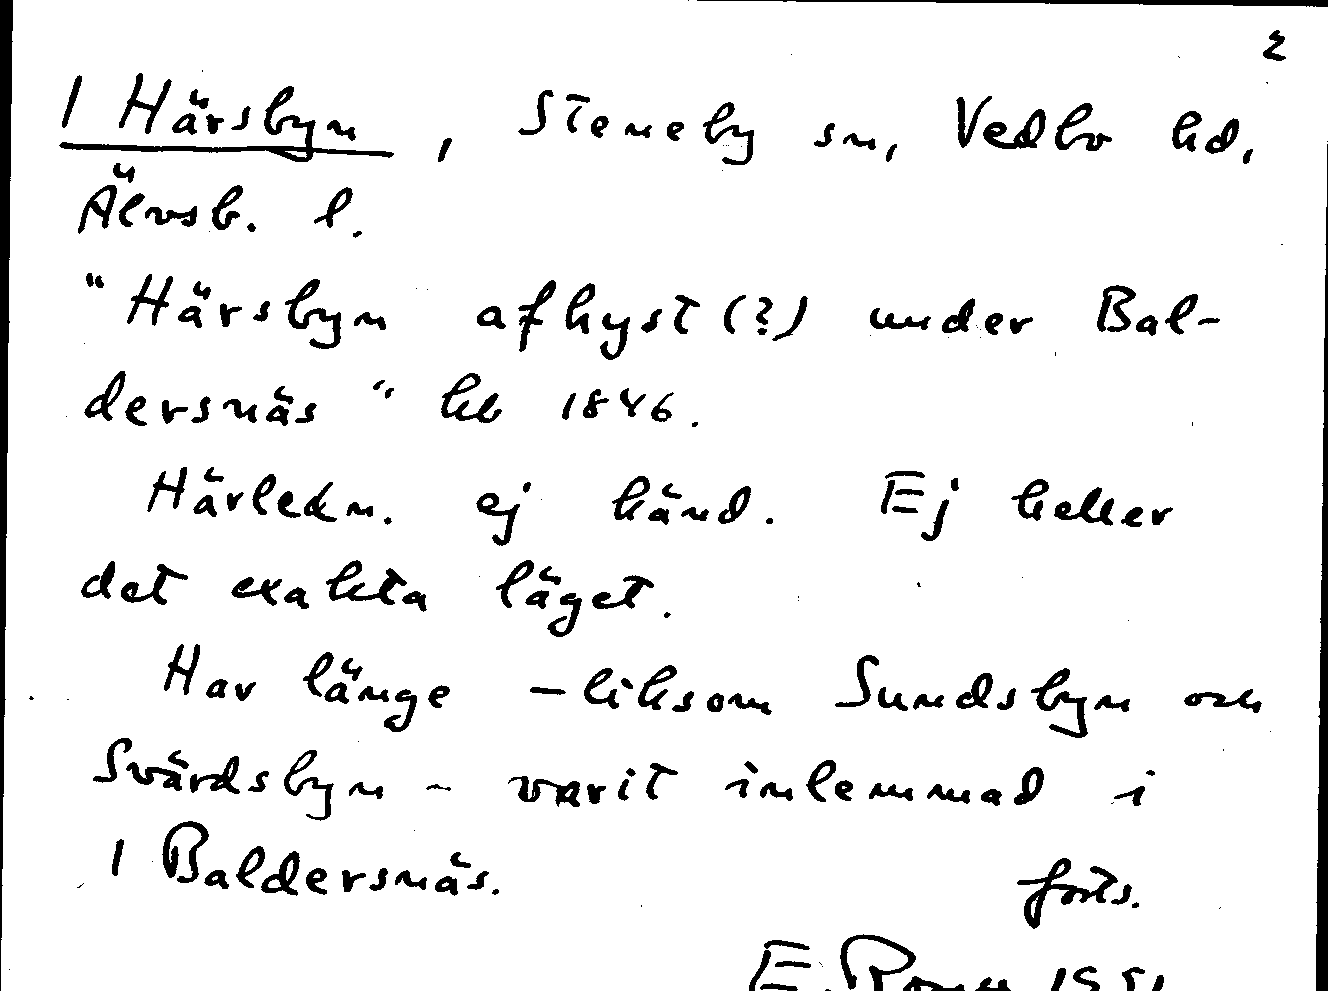 2
1 Härsbyn, Steneby sn, Vedbo hd,
Älvsb. l.
"Härsbyn afhyst (?) under Bal-
dersnäs" kb 1846.
Härledn. ej känd. Ej heller
det exakta läget.
Har länge - liksom Sundsbyn och
Svärdsbyn - varit inlemmad i
1 Baldersnäs.
forts.
E.